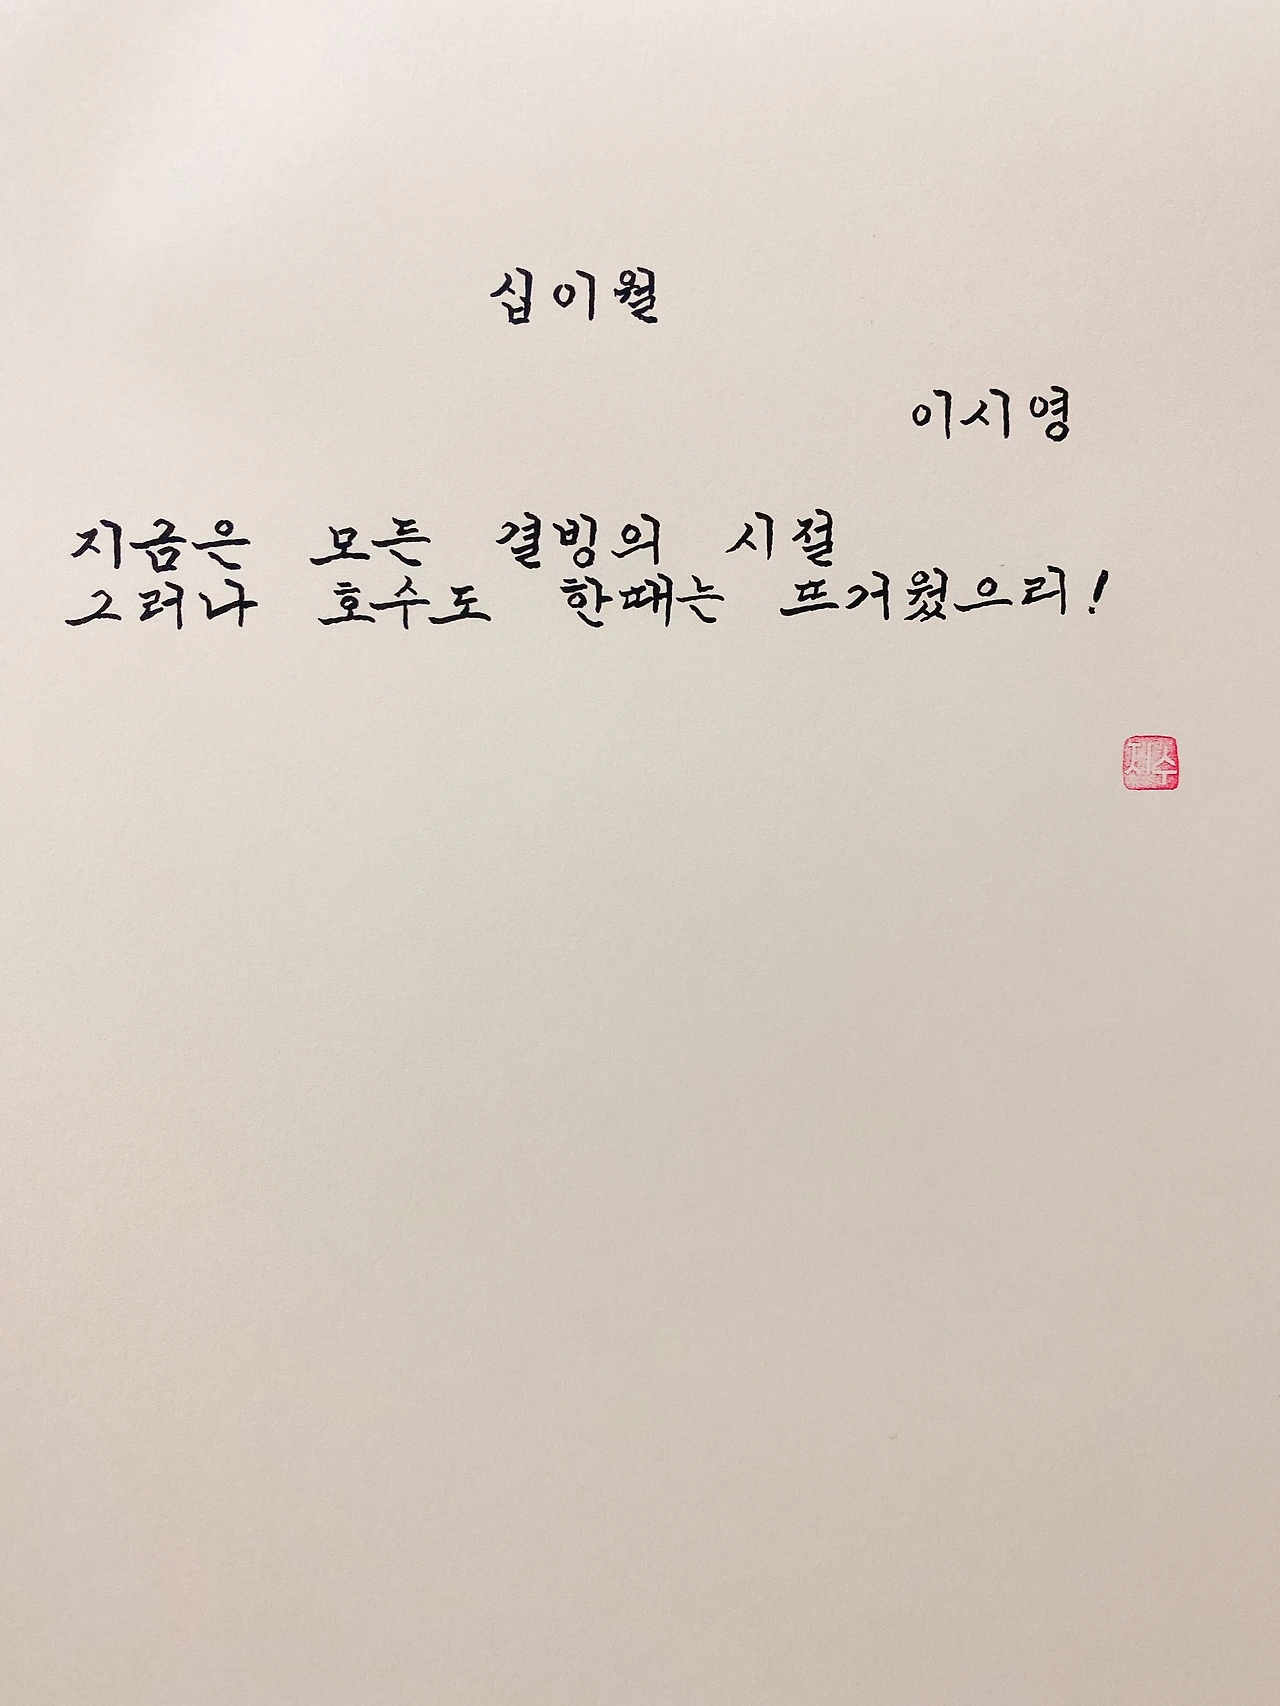 십이월
이시영
지금은 모든 결빙의 시절
그러나 호수도 한때는 뜨거웠으리!